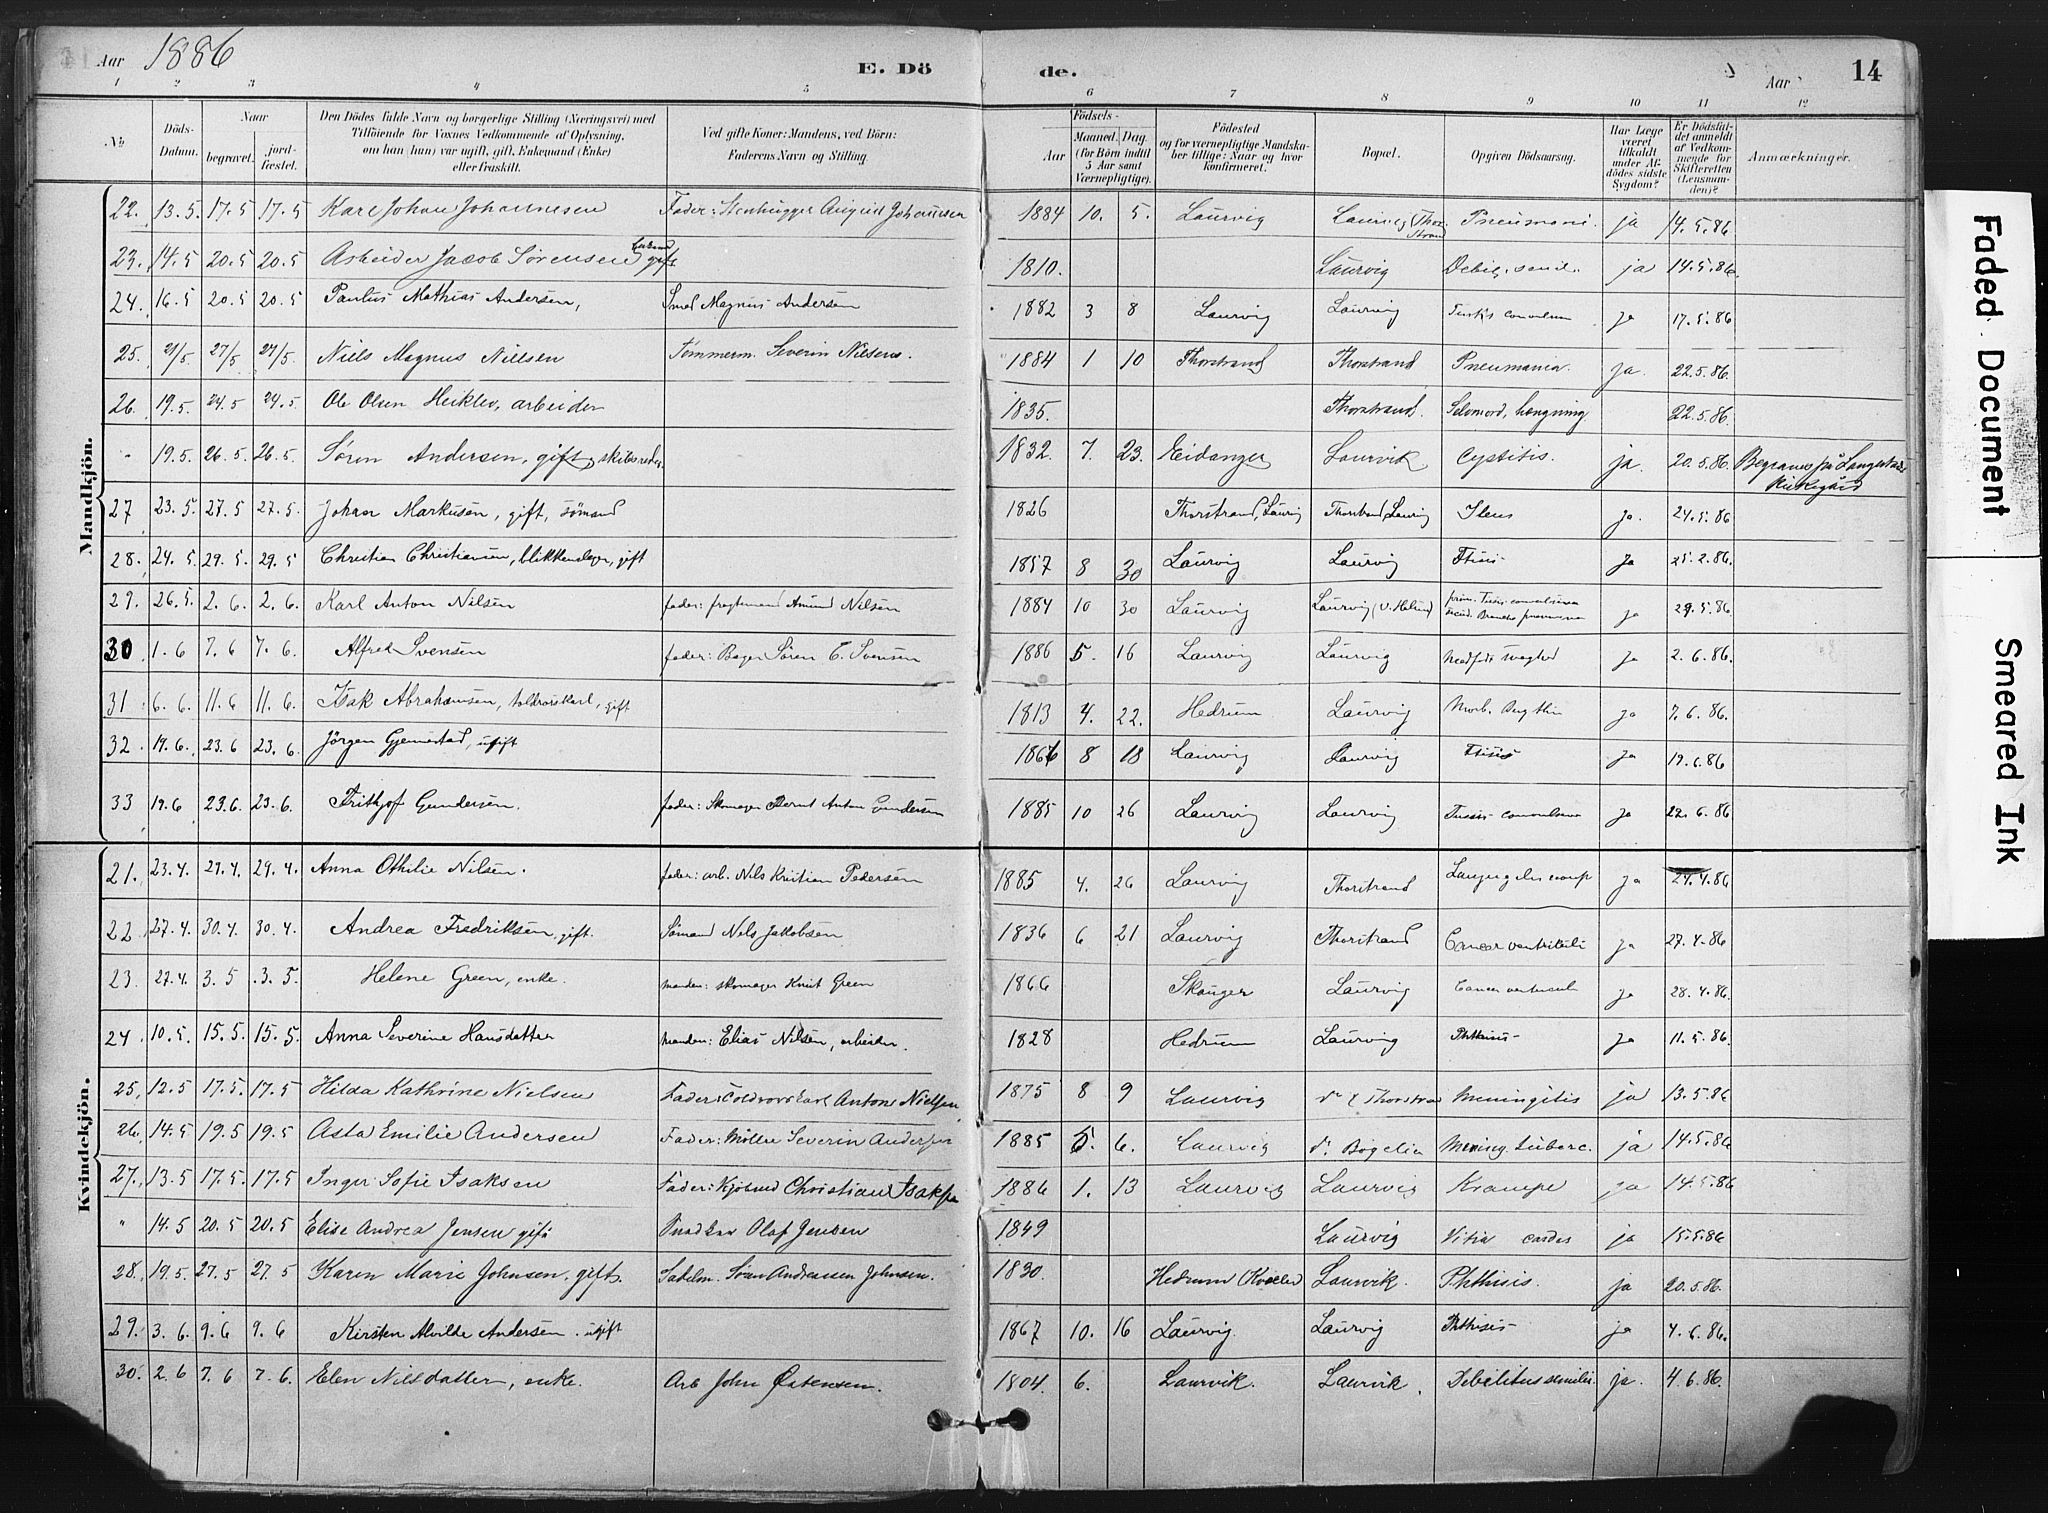 Aar 1886 E. Döde. Aar 14
1 2 3 4 5 6 7 8 9 10 11 12
No.
Döds-Datum.
Naar
begravet. jordfæstet.
Den Dödes fulde Navn og borgerlige Stilling (Næringsvei) med
Tilföiende for Voxnes Vedkommende af Oplysning,
om han (hun) var ugift, gift, Enkemand (Enke)
eller fraskilt.
Ved gifte Koner: Mandens, ved Börn:
Faderens Navn og Stilling.
Födsels-
Aar Maaned. Dag.
(for Börn indtil
5 Aar samt
Værnepligtige).
Födested
og for værnepligtige Mandska-
ber tillige: Naar og hvor
konfirmeret.
Bopæl.
Opgiven Dödsaarsag.
Har Læge
været
tilkaldt
under Af-
dödes sidste
Sygdom?
Er Dödsfal-
det anmeldt
af Vedkom-
mende for
Skifteretten
(Lensman-
den)?
Anmærkninger.
Mandkjön.
22. 13.5. 17.5 17.5 Karl Johan Johannesen Fader: Johansen 1884 10. 5. Laurvig Laurvig (Thorstrand Pneumoni ja 14.5.86
23. 14.5 20.5 20.5 Arbeider Jacob Sörensen gift 1810. Laurvig Debil. senil. ja 14.5.86.
24. 16.5 20.5 20.5 Paulus Mathias Andersen, Smed Magnus Andersen 1882 3 8 Laurvig Laurvig ja 17.5.86
25. 21/5 27/5 27/5. Niels Magnus Nielsen Tømmerm. Severin Nilsens. 1884 1 10 Thorstrand Thorstrand Pneumonia. ja. 22.5.86.
26. 19.5. 24.5 24.5. Ole Olsen Heiklev, arbeider 1835. Thorstrand. Selvmord, hængning. 22.5.86.
" 19.5. 26.5. 26.5. Søren Andersen, gift, skibsreder. 1832. 7. 23. Eidanger Laurvik Cystitis. ja. 20.5.86. Begraves på Langestads
Kirkegård
27 23.5. 27.5 27.5. Johan Markusen, gift, sömand 1826 Thorstrand, Laurvig Thorstrand, Laurvig Ileus ja. 24.5.86
28. 24.5 29.5. 29.5 Christian Christiansen, blikkenslager, gift 1857 8 30 Laurvig Laurvig Ftisis ja 25.2.86.
29. 26.5. 2.6. 2.6. Karl Anton Nilsen fader: fragtemand Amund Nilsen 1884 10 30 Laurvig Laurvig ja 29.5.86.
30 1.6 7.6 7.6. Alfred Svensen fader: Bager Sören C. Svensen 1886 5. 16 Laurvig Laurvig Medfødt svaghed ja 2.6.86.
31 6.6. 11.6 11.6. Isak Abrahamsen, toldrorskarl, gift 1813 4. 22. Hedrum Laurvig Morb. ja 7.6.86.
32. 19.6. 23.6 23.6. Jörgen Gjemestad, ugift 1866 8 18 Laurvig Laurvig Ftisis ja 19.6.86
33 19.6 23.6. 23.6. Frithjof Gundersen. fader: Skomager Bernt Anton Gundersen 1885 10 26 Laurvig Laurvig Tussis convulsiva ja 22.6.86
Kvindekjön.
21. 23.4 29.4. 29.4. Anna Othilie Nilsen. fader: arb. Nils Kristian Pedersen 1885 4. 26 Laurvig Thorstrand ja 24.4.86
22. 27.4. 30.4. 30.4. Andrea Fredriksen, gift. Sömand Nils Jakobsen 1836 6 21 Laurvig Thorstrand Cancer ventriculi ja 27.4.86
23. 27.4. 3.5 3.5. Helene Green, enke. manden: skomager Knut Green 1866 Skauger Laurvig Cancer ventriculi ja 28.4.86.
24. 10.5. 15.5. 15.5. Anna Severine Hansdatter manden: Elias Nilsen, arbeider. 1828 Hedrum Laurvig Phthisis ja 11.5.86.
25. 12.5 17.5 17.5 Hilda Kathrine Nielsen Fader: Toldrorskarl Anton Nielsen 1875 8 9 Laurvig Thorstrand Meningitis ja 13.5.86
26. 14.5 19.5 19.5 Asta Emilie Andersen Fader: Møller Severin Andersen 1885 5. 6. Laurvig Bøgelia Mening. tuberc. ja 14.5.86
27. 13.5 17.5. 17.5 Inger Sofie Isaksen Fader: Christian Isaksen 1886 1. 13 Laurvig Laurvig Krampe ja 14.5.86
" 14.5 20.5 20.5 Elise Andrea Jensen gift Snedker Olaf Jensen 1849 Laurvig Vitia cordis ja 15.5.86
28. 19.5. 27.5 27.5 Karen Marie Johnsen, gift. Sadelm. Søren Andreassen Johnsen. 1830. Hedrum Laurvik. Phthisis. ja 20.5.86.
29. 3.6. 9.6 9.6 Kirsten Alvilde Andersen. ugift 1867 10. 16 Laurvig. Laurvig Phthisis ja 4.6.86.
30. 2.6 7.6 7.6. Elen Nilsdatter, enke. Arb John Østensen. 1804. 6. Laurvik. Laurvik. Debilitas senilis. ja. 4.6.86.
Faded Document
Smeared Ink